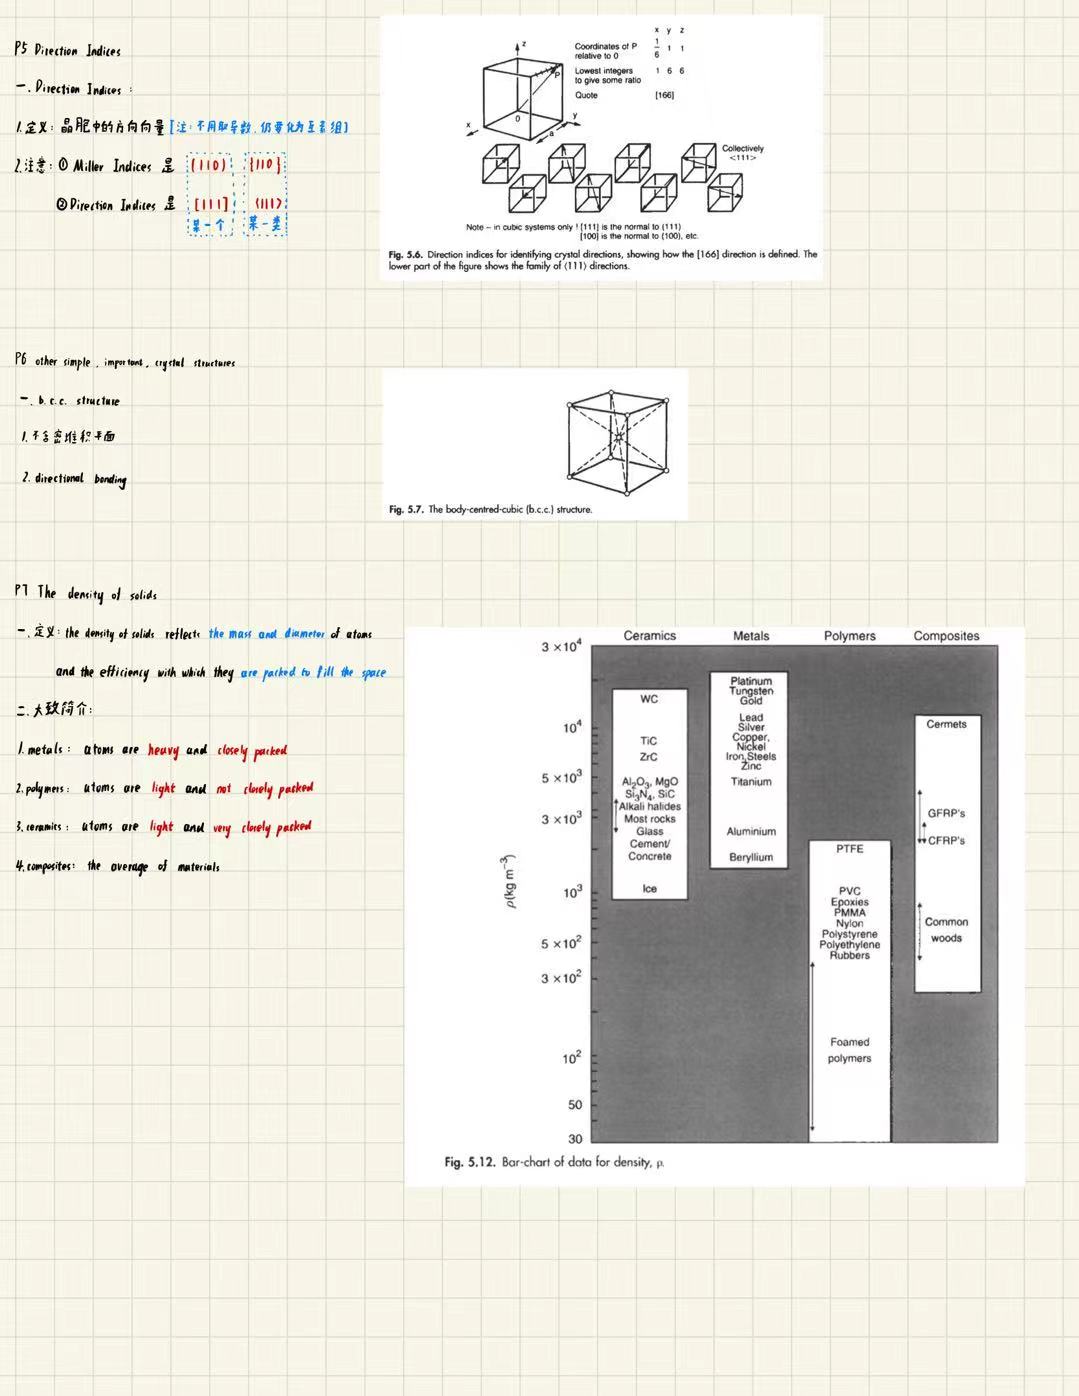 P5 Direction Indices
一. Direction Indices :
1.定义: 晶胞中的方向向量[注:不用取导数,仍要化为互素组]
2.注意: ① Miller Indices 是 (110) {110}
② Direction Indices 是 [111] <111>
某一个 某一类
x y z
Coordinates of P relative to 0 1/6 1 1
Lowest integers to give some ratio 1 6 6
Quote [166]
z
P
0
y
x
a
Collectively
<111>
Note – in cubic systems only ! [111] is the normal to (111)
[100] is the normal to (100), etc.
Fig. 5.6. Direction indices for identifying crystal directions, showing how the [166] direction is defined. The
lower part of the figure shows the family of ⟨111⟩ directions.
P6 other simple , important , crystal structures
一. b.c.c. structure
1.不含密堆积平面
2. directional bonding
Fig. 5.7. The body-centred-cubic (b.c.c.) structure.
P7 The density of solids
一.定义: the density of solids reflects the mass and diameter of atoms
and the efficiency with which they are packed to fill the space
二.大致简介:
1. metals : atoms are heavy and closely packed
2.polymers: atoms are light and not closely packed
3.ceramics : atoms are light and very closely packed
4.composites: the average of materials
Ceramics Metals Polymers Composites
3 × 10⁴
10⁴
5 × 10³
3 × 10³
10³
5 × 10²
3 × 10²
10²
50
30
ρ(kg m⁻³)
WC
TiC
ZrC
Al₂O₃, MgO
Si₃N₄, SiC
Alkali halides
Most rocks
Glass
Cement/
Concrete
Ice
Platinum
Tungsten
Gold
Lead
Silver
Copper,
Nickel
Iron,Steels
Zinc
Titanium
Aluminium
Beryllium
PTFE
PVC
Epoxies
PMMA
Nylon
Polystyrene
Polyethylene
Rubbers
Foamed
polymers
Cermets
GFRP's
CFRP's
Common
woods
Fig. 5.12. Bar-chart of data for density, ρ.